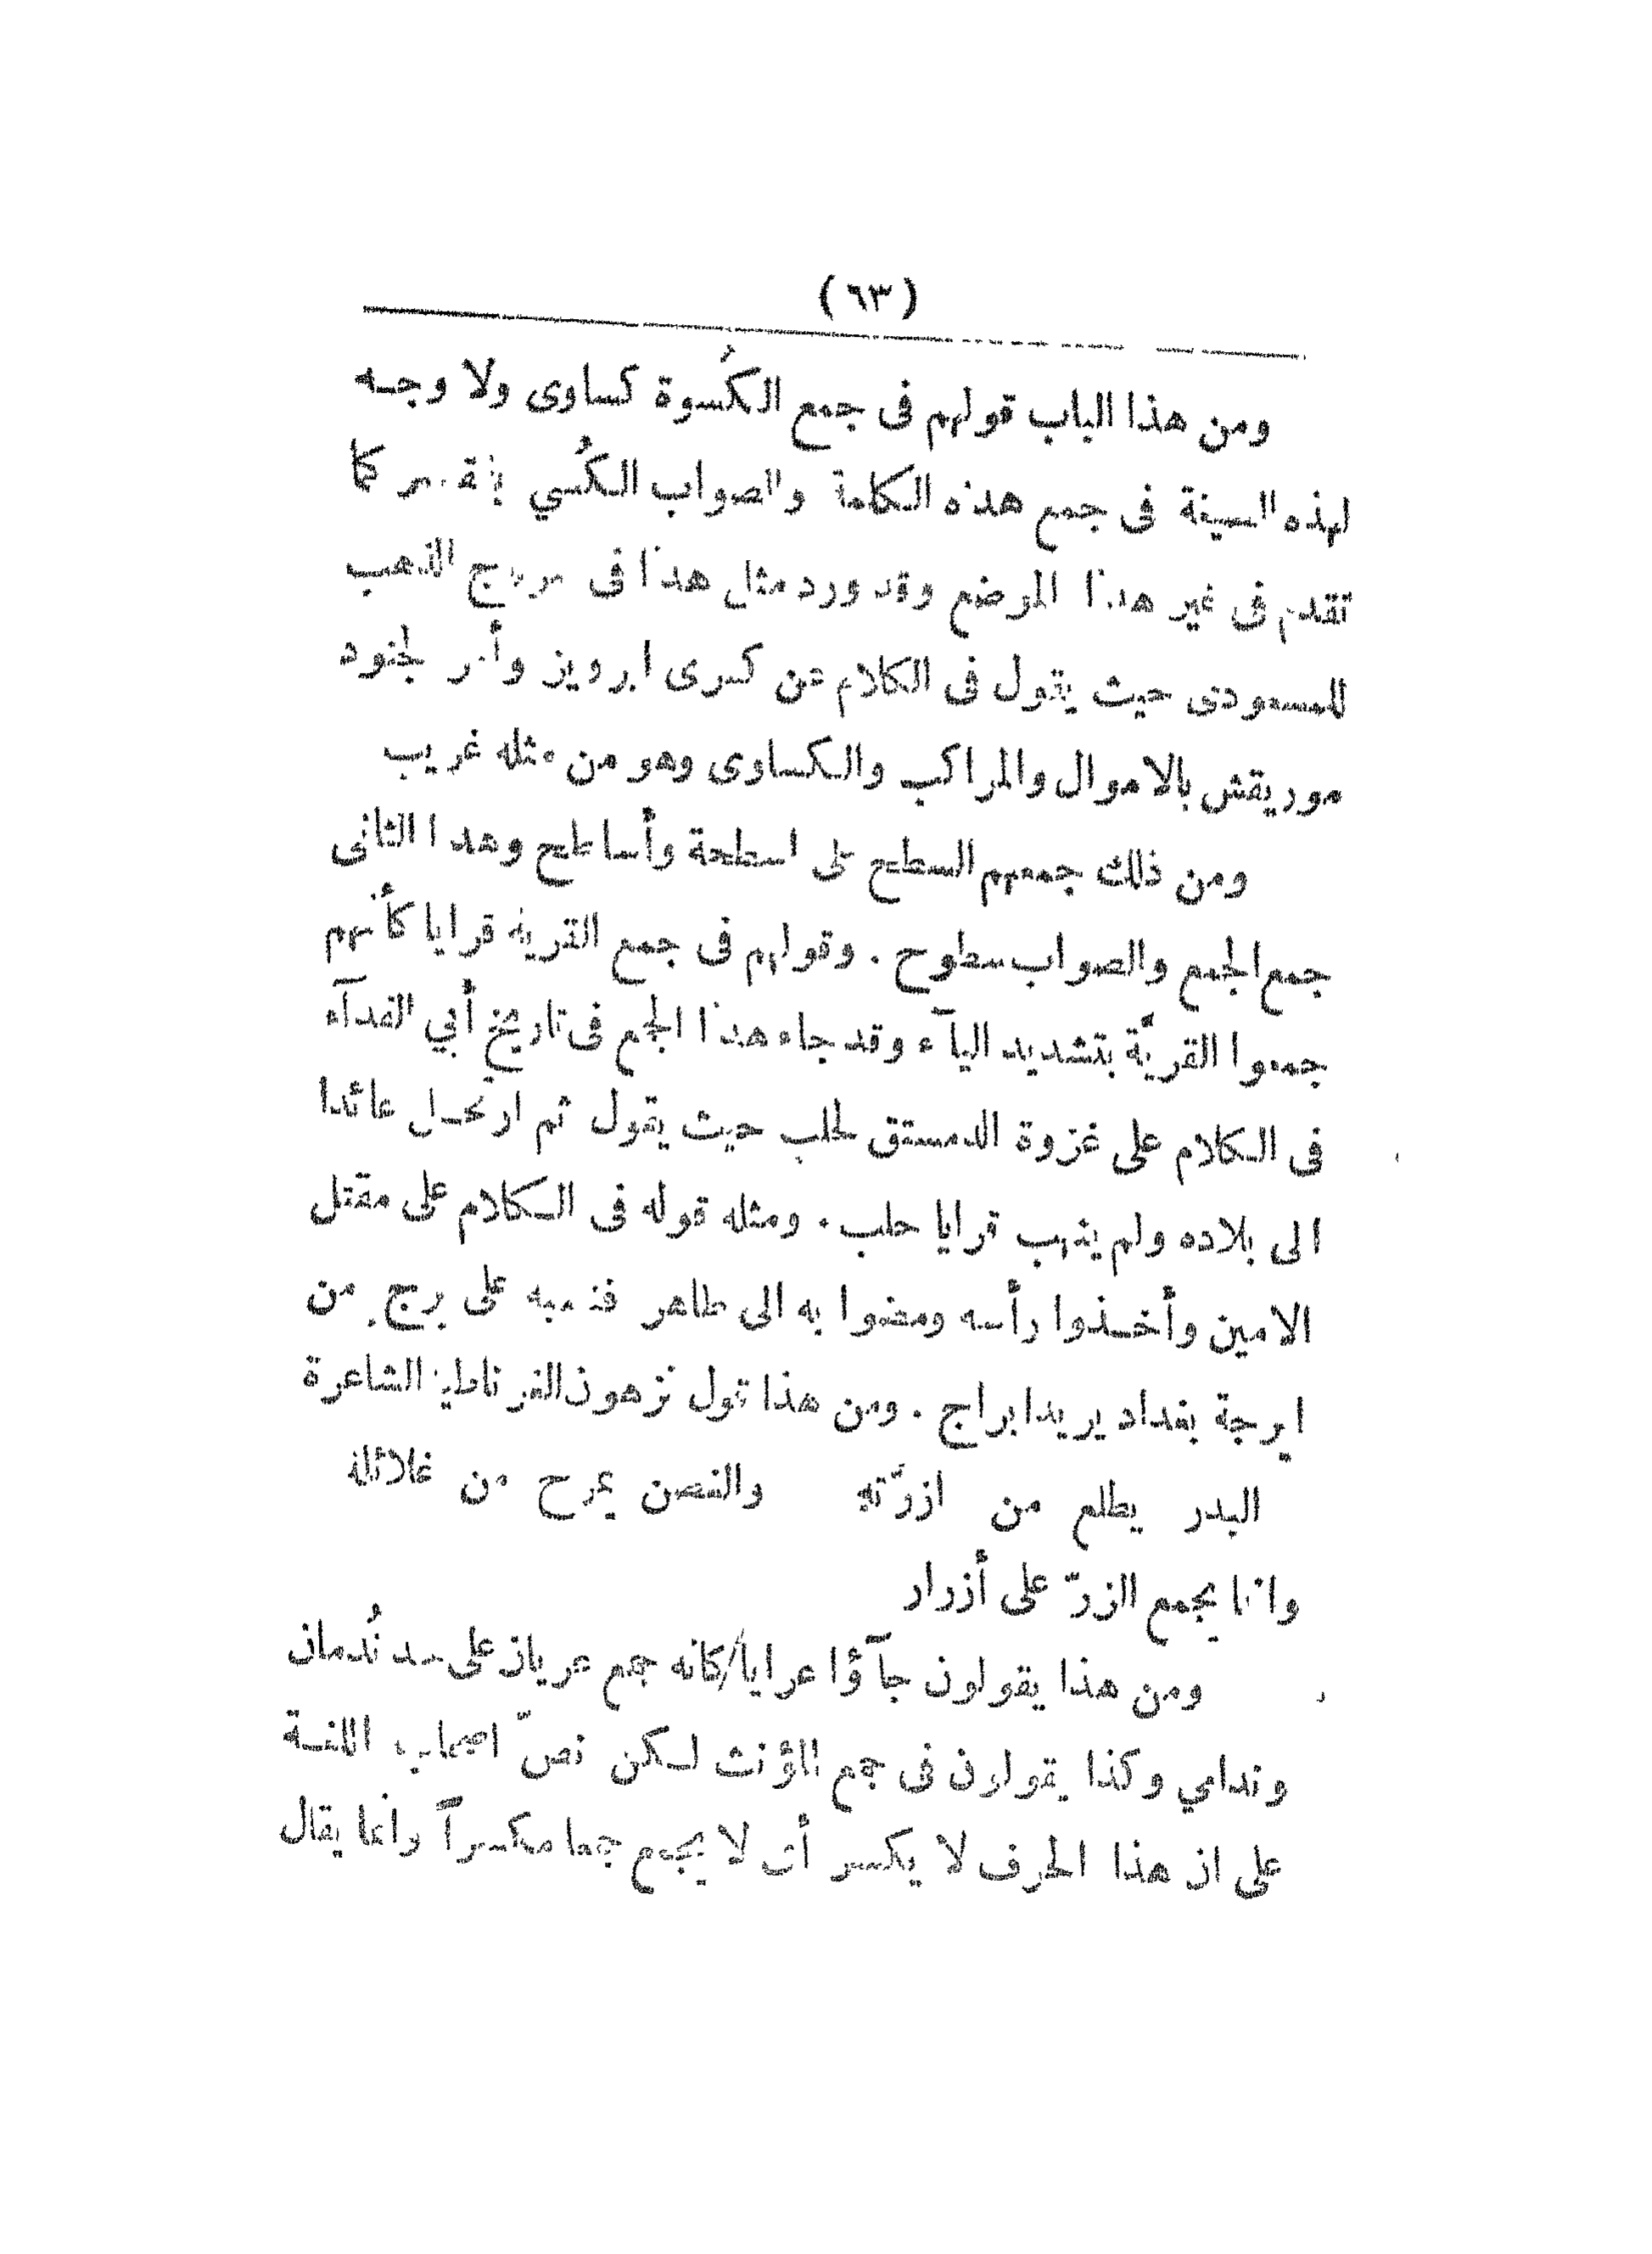 (٦٣)
ومن هذا الباب قولهم فى جمع الكُسوة كساوى ولا وجه
لهذه الصيغة فى جمع هذه الكلمة والصواب الكُسي بالقصر كما
تقدم فى غير هذا الموضع وقد ورد مثل هذا فى مروج الذهب
للمسعودى حيث يقول فى الكلام عن كسرى ابرويز وأمر لجنود
موريقش بالاموال والمراكب والكساوى وهو من مثله غريب
ومن ذلك جمعهم السطح على اسطحة وأساطح وهذا الثانى
جمع الجمع والصواب سطوح . وقولهم فى جمع القرية قرايا كأنهم
جمعوا القريّة بتشديد اليآء وقد جاء هذا الجمع فى تاريخ أبي الفدآء
فى الكلام على غزوة الدمستق لحلب حيث يقول ثم ارتحل عائدا
الى بلاده ولم ينهب قرايا حلب . ومثله قوله فى الكلام على مقتل
الامين وأخذوا رأسه ومضوا به الى طاهر فنصبه على برج من
ابرجة بغداد يريد ابراج . ومن هذا قول نزهون الغرناطية الشاعرة
البدر يطلع من ازرّته والغصن يمرح من غلائله
وانما يجمع الزرّ على أزرار
ومن هذا يقولون جآؤا عرايا كانه جمع عريان على حد نُدمان
وندامي وكذا يقولون فى جمع المؤنث لكن نصّ اصحاب اللغة
على ان هذا الحرف لا يكسر أى لا يجمع جمعا مكسرآ وانما يقال